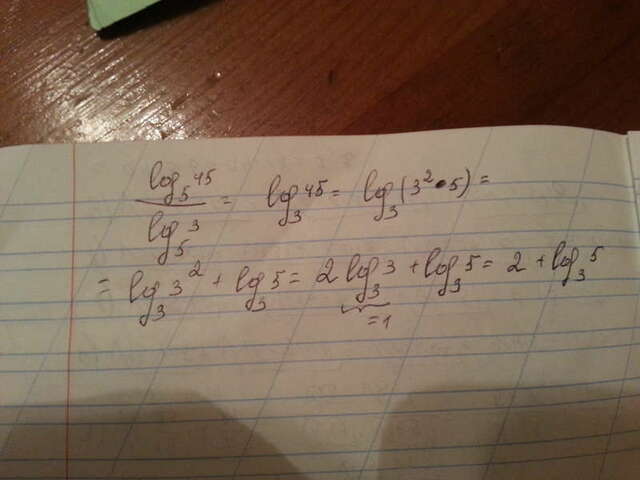 log₅45 / log₅3 = log₃45 = log₃(3²•5) =
= log₃3² + log₃5 = 2 log₃3 + log₃5 = 2 + log₃5
=1